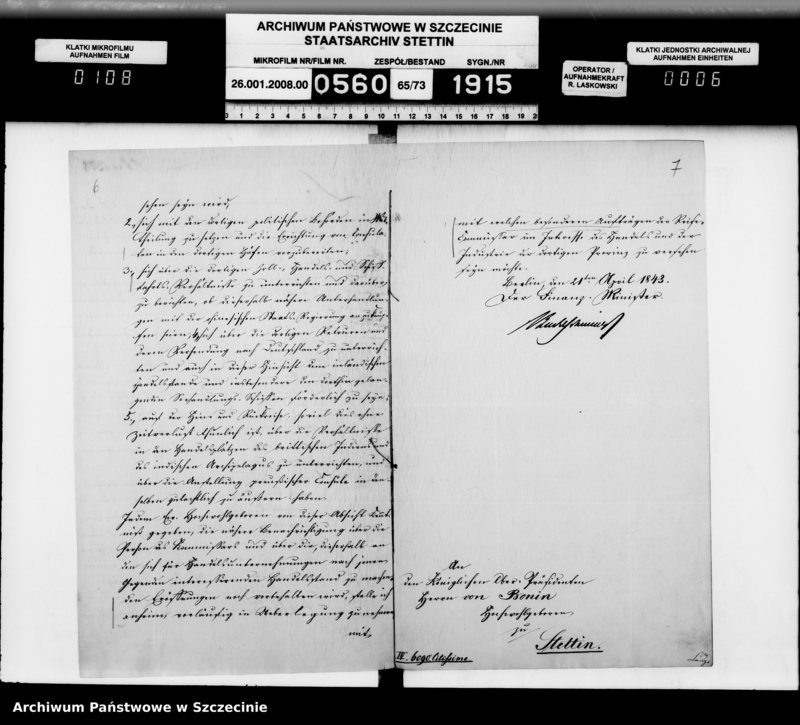 ARCHIWUM PAŃSTWOWE W SZCZECINIE
STAATSARCHIV STETTIN
KLATKI MIKROFILMU
AUFNAHMEN FILM
0108
MIKROFILM NR/FILM NR.
ZESPÓŁ/BESTAND
SYGN./NR
26.001.2008.00
0560
65/73
1915
OPERATOR /
AUFNAHMEKRAFT
R. LASKOWSKI
KLATKI JEDNOSTKI ARCHIWALNEJ
AUFNAHMEN EINHEITEN
0006
6
sehen seyn wird,
2, sich mit den dortigen politischen Behörden in Mit-
theilung zu setzen und die Errichtung von Consula-
ten in den dortigen Häfen vorzubereiten;
3, sich über die dortigen Zoll-, Handels- und Schiff-
fahrts-Verhältnisse zu unterrichten und darüber
zu berichten, ob dieserhalb nähere Unterhandlun-
gen mit der chinesischen Staats-Regierung anzuknüp-
fen seien, 4, sich über die dortigen Retouren und
deren Versendung nach Deutschland zu unterrich-
ten und auch in dieser Hinsicht dem inländischen
Handelsstande und insbesondere den dorthin gelan-
genden Seehandlungs-Schiffen förderlich zu seyn;
5, auf der Hin- und Rückreise, soviel dies ohne
Zeitverlust thunlich ist, über die Verhältnisse
in den Handelsplätzen des brittischen Indiens und
des indischen Archipelagus zu unterrichten, und
über die Anstellung preußischer Consuln in den-
selben gutachtlich zu äußern haben.
Indem Ew. Hochwohlgeboren von dieser Absicht Kennt-
niß gegeben, die nähere Benachrichtigung über die
Person des Kommissars und über die, dieserhalb an
die sich für Handelsunternehmungen nach jenen
Gegenden interessirenden Handelsstand zu machen-
den Eröffnungen noch vorbehalten wird, stelle ich
anheim, vorläufig in Ueberlegung zu nehmen,
mit
7
mit welchen besonderen Aufträgen der Reise-
Commissar im Interesse des Handels und der
Industrie der dortigen Provinz zu versehen
seyn möchte.
Berlin, den 21ten April 1843.
Der Finanz-Minister.
An
den Königlichen Ober-Präsidenten
Herrn von Bonin
Hochwohlgeboren
zu
Stettin.
IV. 6090. Citissime.
Archiwum Państwowe w Szczecinie